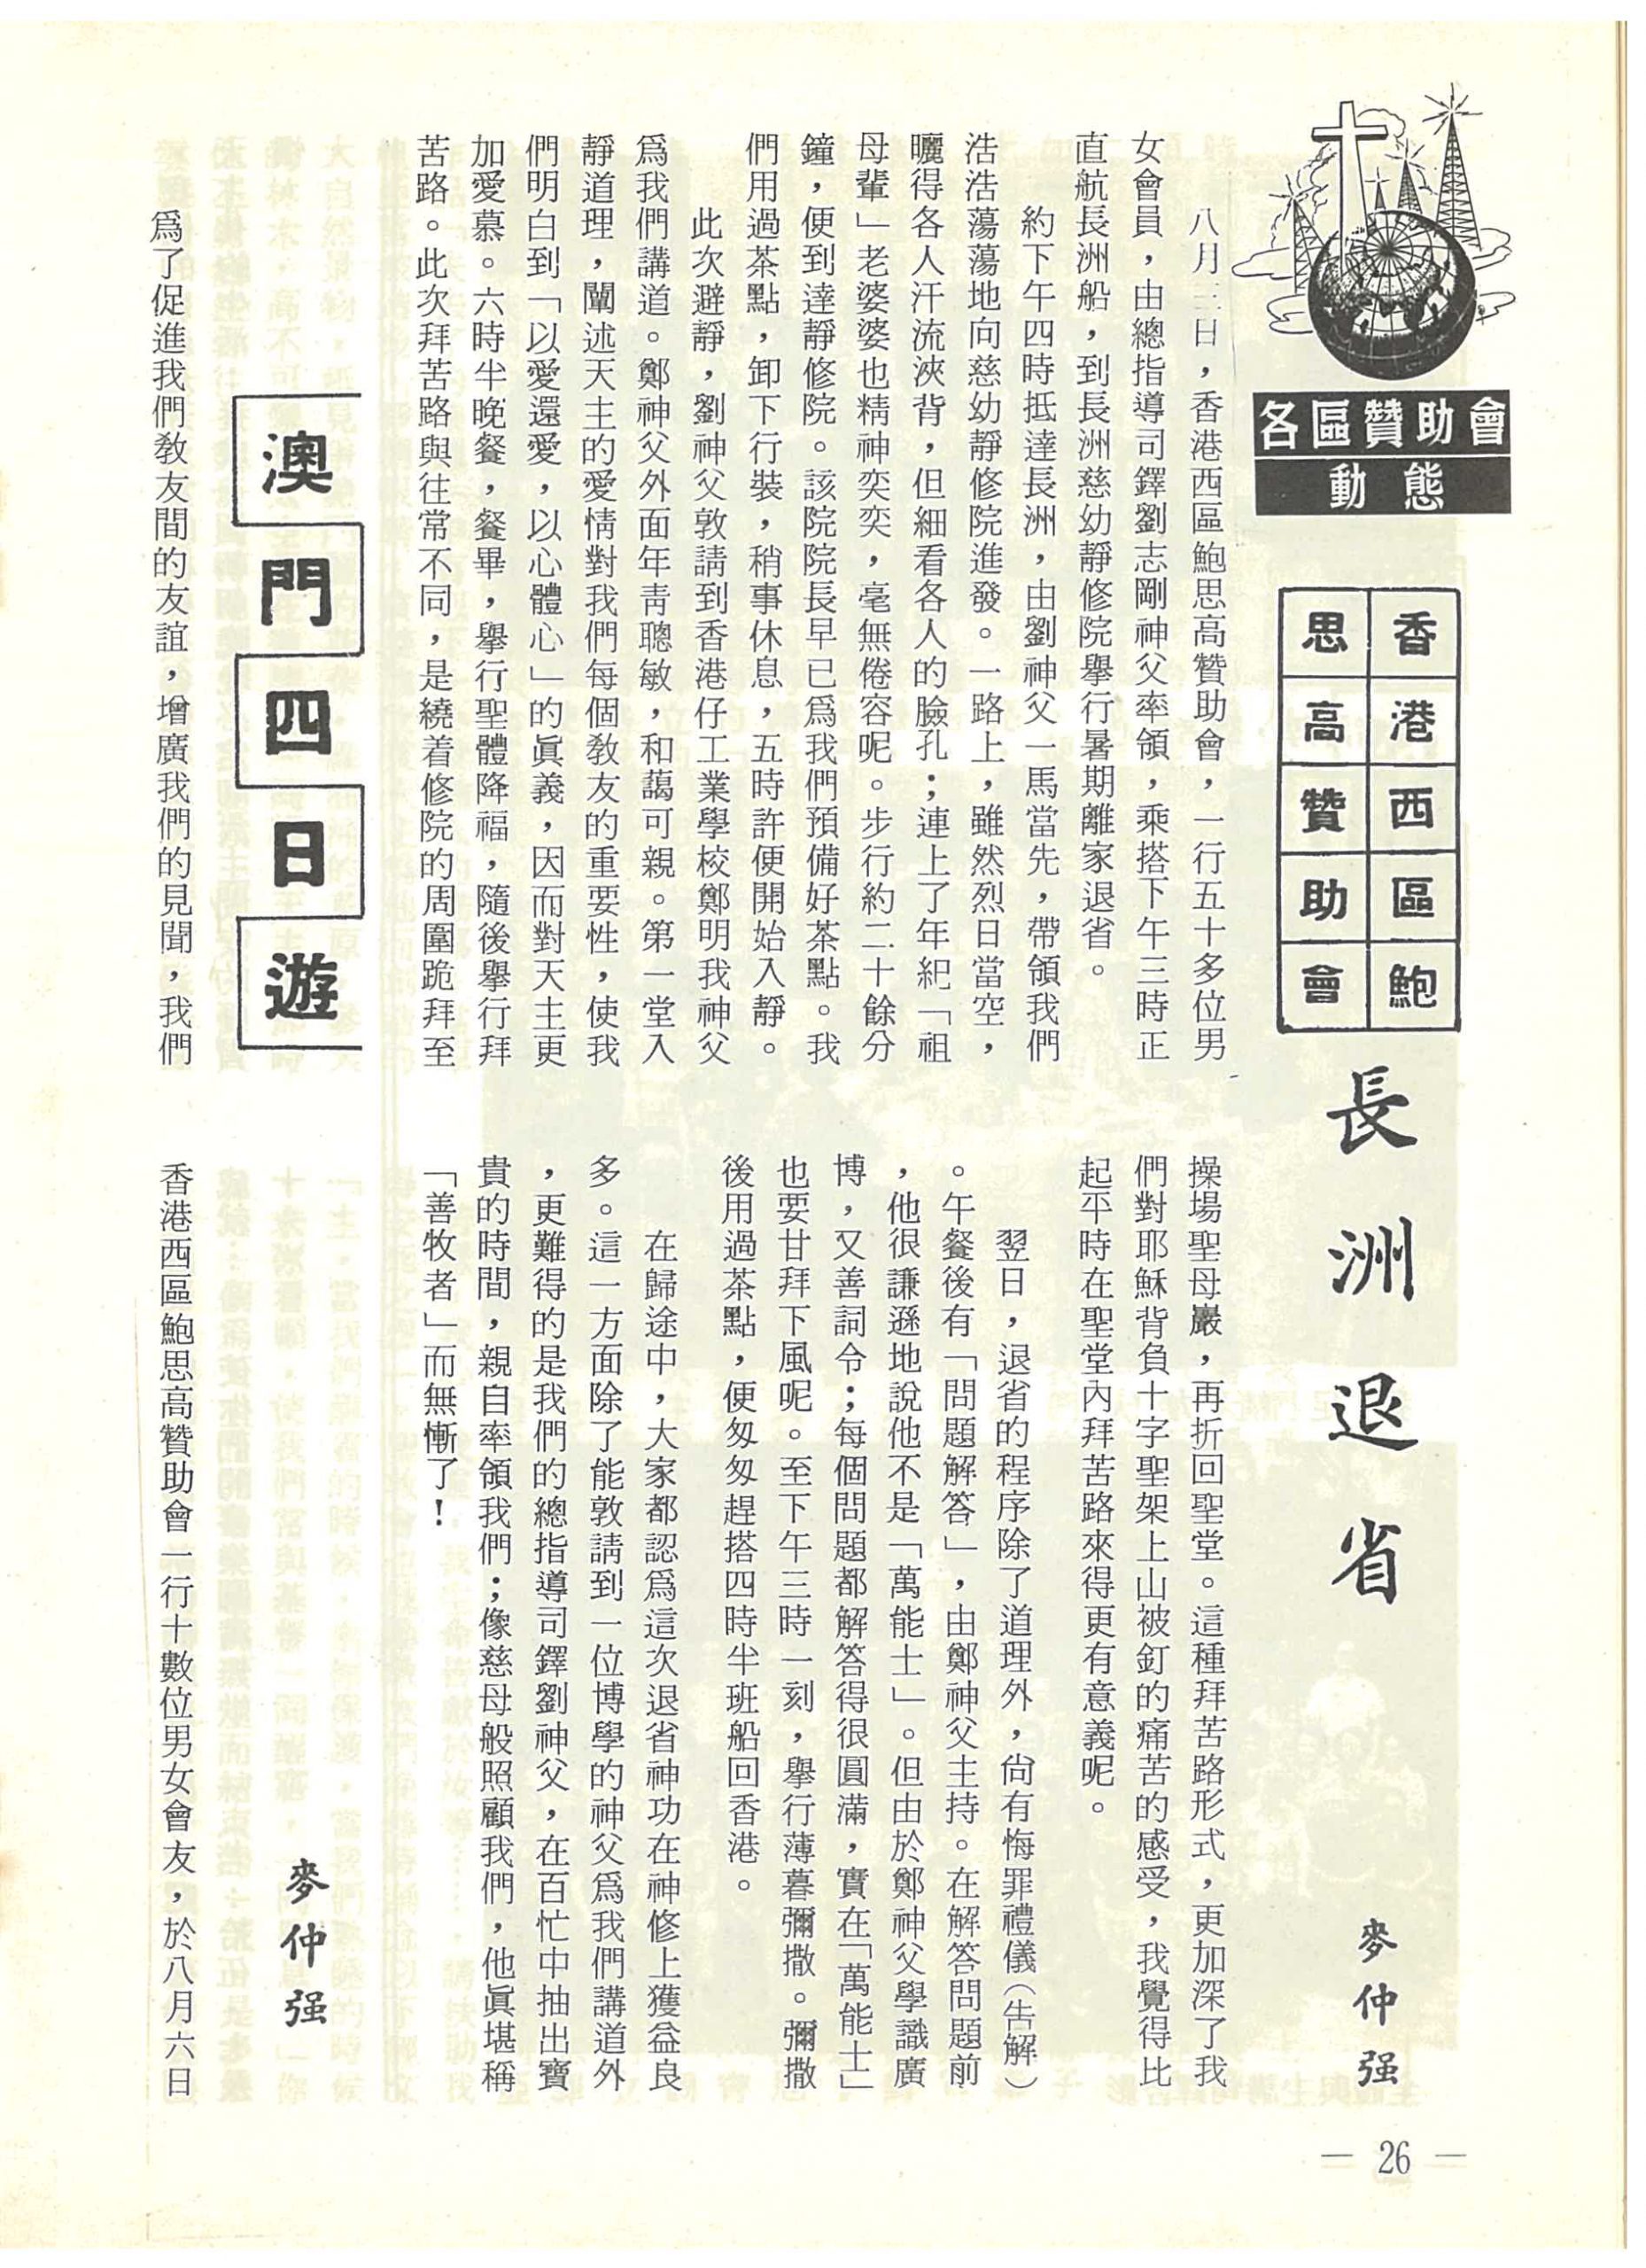 各區贊助會
動態
香港西區鮑
思高贊助會
長洲退省
麥仲强
八月三日，香港西區鮑思高贊助會，一行五十多位男
女會員，由總指導司鐸劉志剛神父率領，乘搭下午三時正
直航長洲船，到長洲慈幼靜修院舉行暑期離家退省。
約下午四時抵達長洲，由劉神父一馬當先，帶領我們
浩浩蕩蕩地向慈幼靜修院進發。一路上，雖然烈日當空，
曬得各人汗流浹背，但細看各人的臉孔；連上了年紀「祖
母輩」老婆婆也精神奕奕，毫無倦容呢。步行約二十餘分
鐘，便到達靜修院。該院院長早已為我們預備好茶點。我
們用過茶點，卸下行裝，稍事休息，五時許便開始入靜。
此次避靜，劉神父敦請到香港仔工業學校鄭明我神父
為我們講道。鄭神父外面年靑聰敏，和藹可親。第一堂入
靜道理，闡述天主的愛情對我們每個教友的重要性，使我
們明白到「以愛還愛，以心體心」的眞義，因而對天主更
加愛慕。六時半晚餐，餐畢，舉行聖體降福，隨後舉行拜
苦路。此次拜苦路與往常不同，是繞着修院的周圍跪拜至
操場聖母巖，再折回聖堂。這種拜苦路形式，更加深了我
們對耶穌背負十字聖架上山被釘的痛苦的感受，我覺得比
起平時在聖堂內拜苦路來得更有意義呢。
翌日，退省的程序除了道理外，尙有悔罪禮儀（告解）
。午餐後有「問題解答」，由鄭神父主持。在解答問題前
，他很謙遜地說他不是「萬能士」。但由於鄭神父學識廣
博，又善詞令；每個問題都解答得很圓滿，實在「萬能士」
也要甘拜下風呢。至下午三時一刻，舉行薄暮彌撒。彌撒
後用過茶點，便匆匆趕搭四時半班船回香港。
在歸途中，大家都認爲這次退省神功在神修上獲益良
多。這一方面除了能敦請到一位博學的神父爲我們講道外
，更難得的是我們的總指導司鐸劉神父，在百忙中抽出寶
貴的時間，親自率領我們；像慈母般照顧我們，他眞堪稱
「善牧者」而無慚了！
澳門四日遊
麥仲强
爲了促進我們教友間的友誼，增廣我們的見聞，我們
香港西區鮑思高贊助會一行十數位男女會友，於八月六日
— 26 —